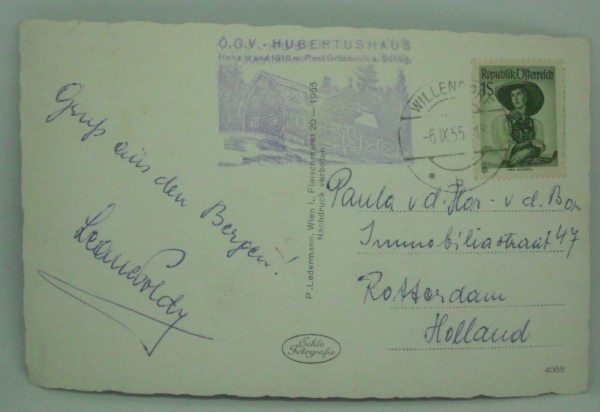 Ö.G.V. - HUBERTUSHAUS
Hohe Wand 1010 m, Post Grünbach a. Schbg.
Republik Österreich
1S
WILLENDORF
-6.IX.55
Gruß aus den Bergen!
P. Ledermann, Wien I., Fleischmarkt 20 — 1955
Nachdruck verboten
Paula v. d. Hor - v. d. Bor
Immobiliastraat 47
Rotterdam
Holland
Echte
Fotografie
4068